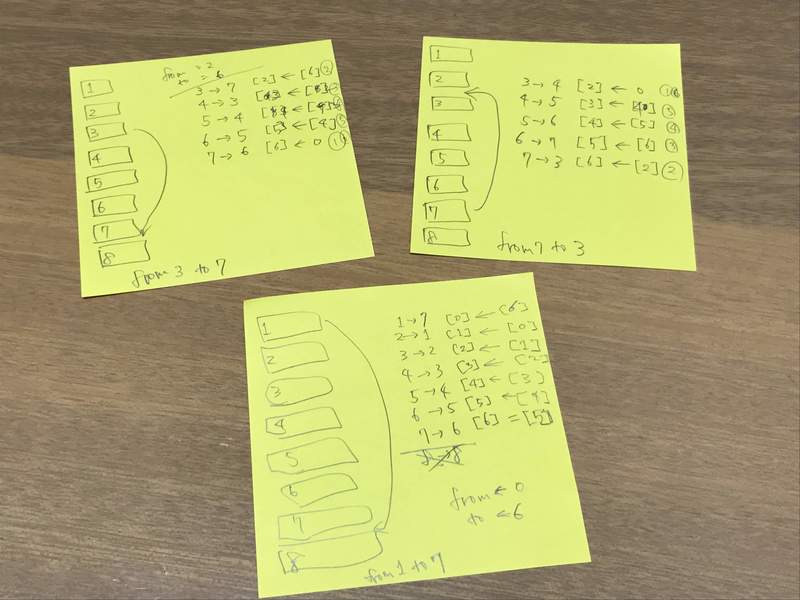 1
2
3
4
5
6
7
8
from = 2
to = 6
3→7 [2] ← [6] ②
4→3
5→4
6→5 ← [4]
7→6 [6] ← 0
from 3 to 7
1
2
3
4
5
6
7
8
3→4 [2] ← 0
4→5 [3] ←
5→6 [4] ← [5] ④
6→7 [5] ← [6] ③
7→3 [6] ← [2] ②
from 7 to 3
1
2
3
4
5
6
7
8
1→7 [0] ← [6]
2→1 [1] ← [0]
3→2 [2] ← [1]
4→3 [3] ← [2]
5→4 [4] ← [3]
6→5 [5] ← [4]
7→6 [6] = [5]
from ← 0
to ← 6
from 1 to 7